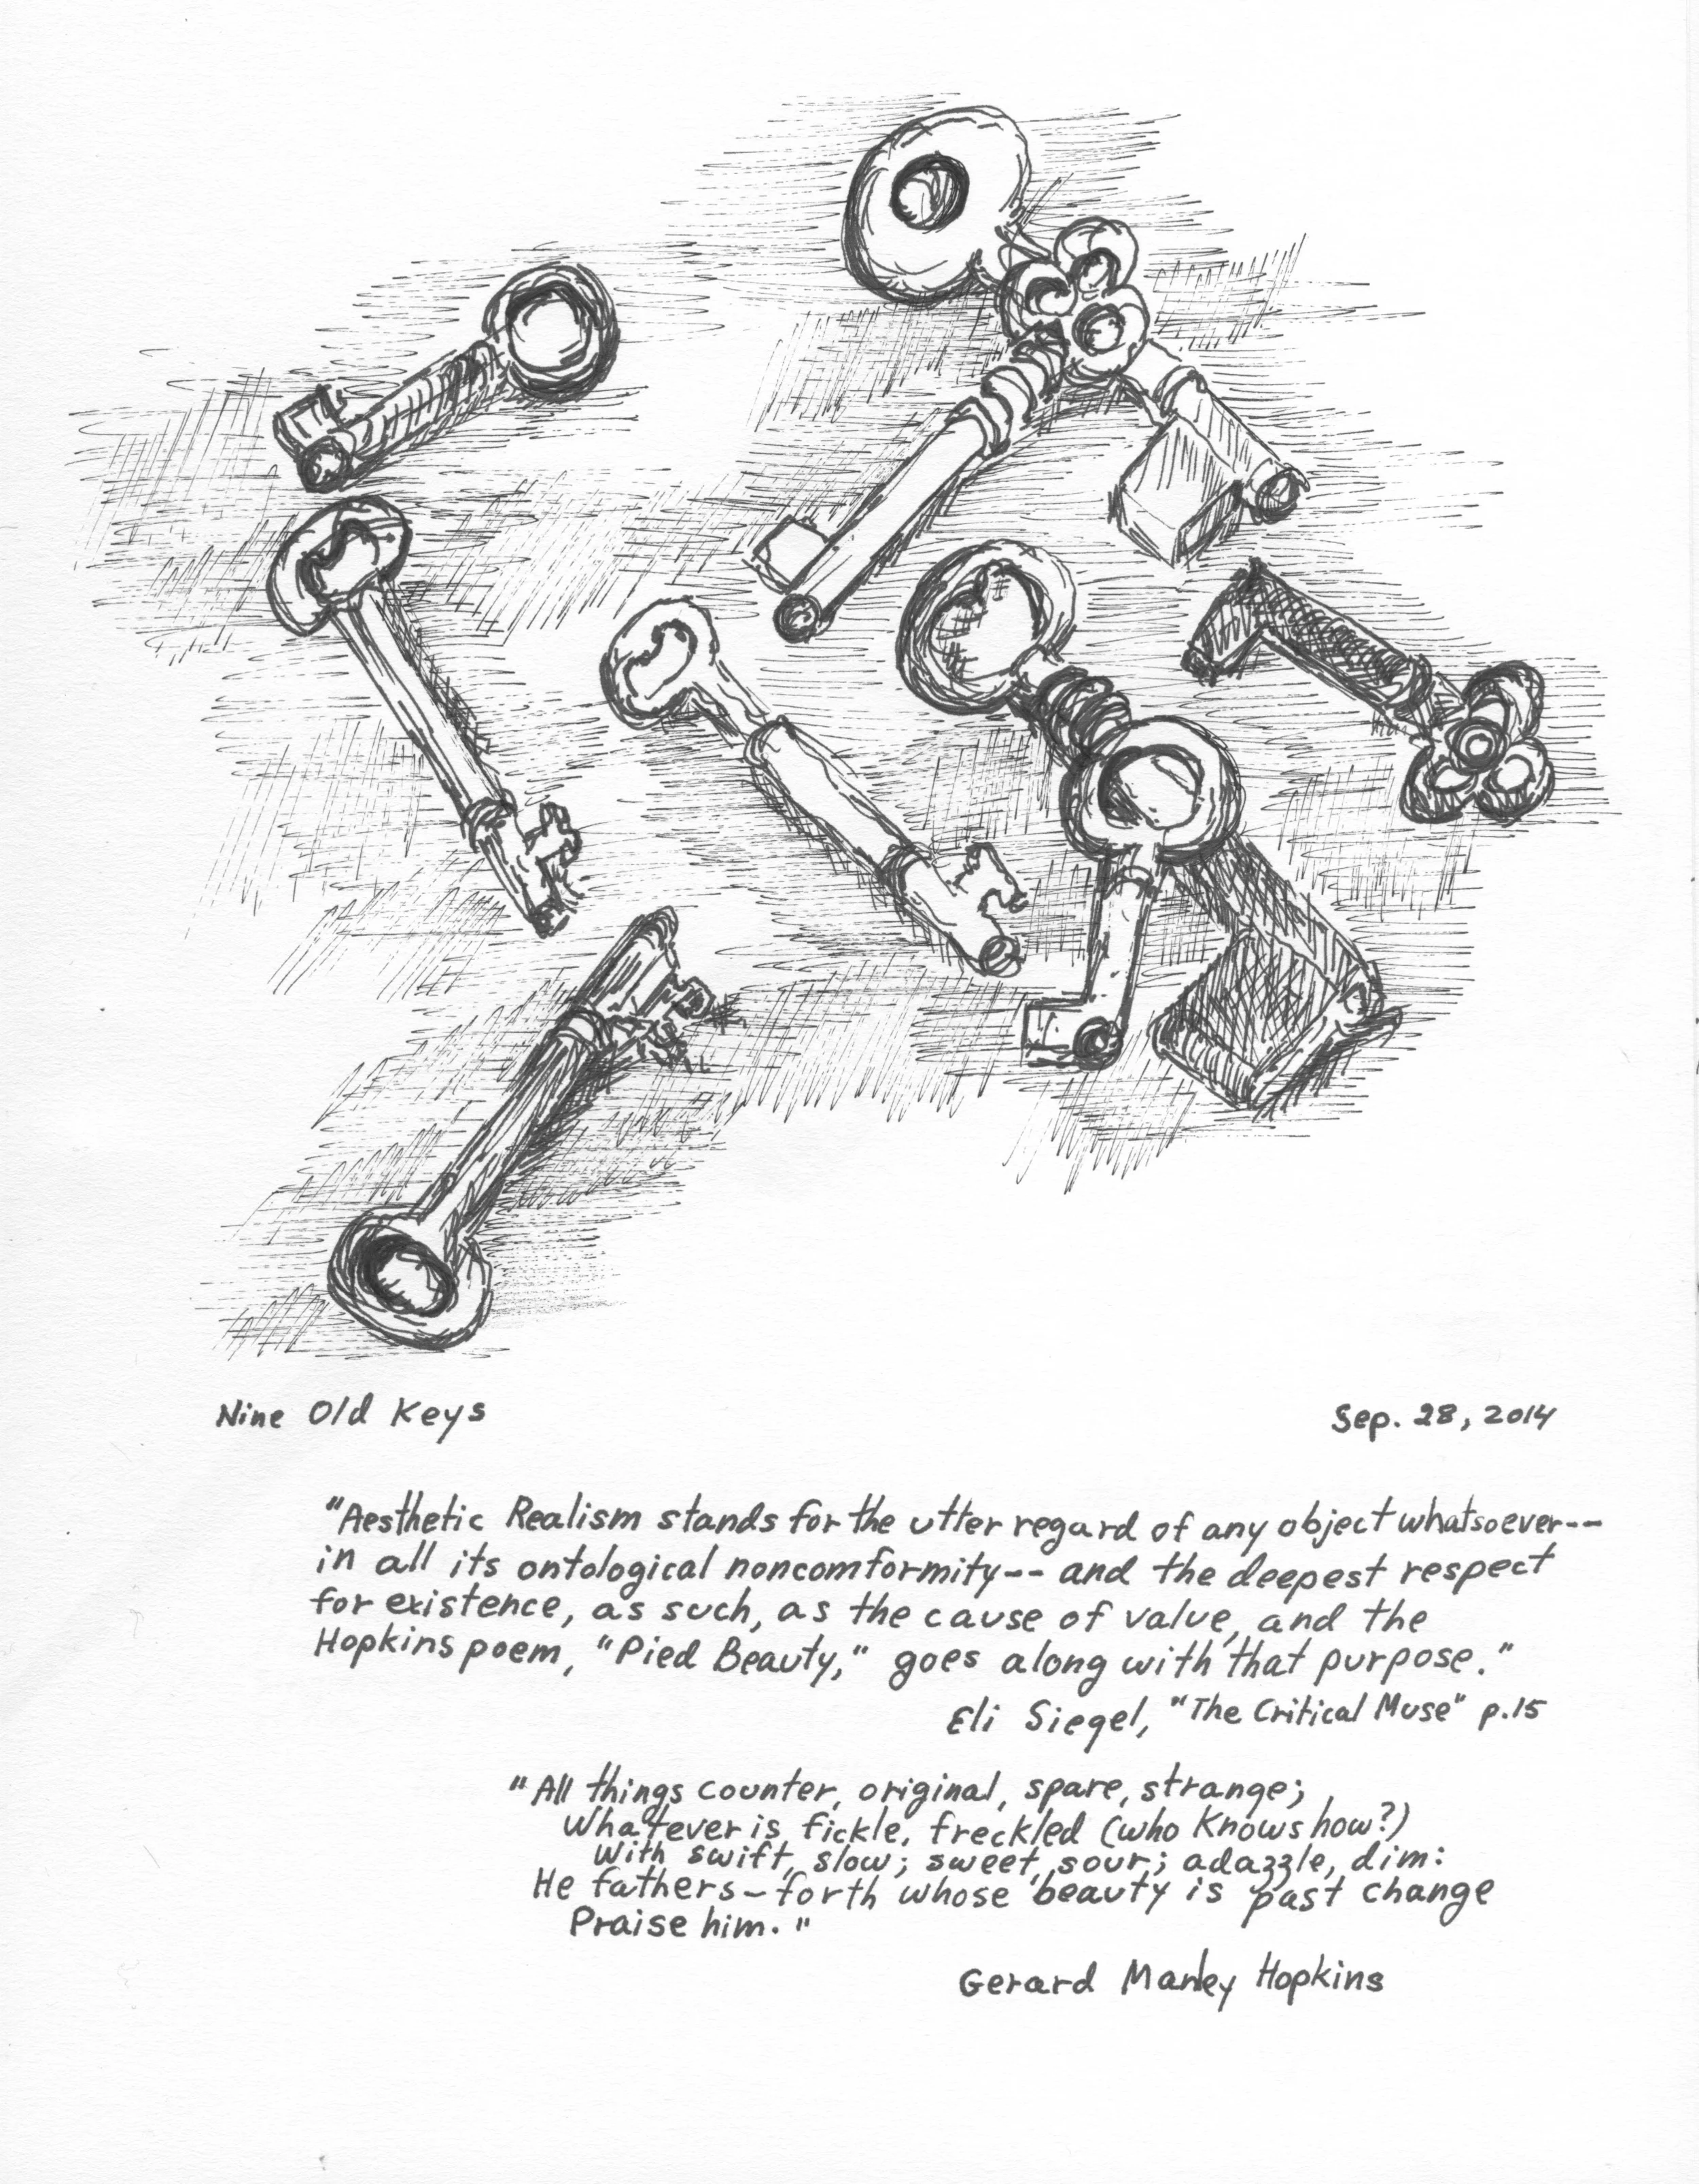 Nine Old Keys
Sep. 28, 2014
"Aesthetic Realism stands for the utter regard of any object whatsoever--
in all its ontological noncomformity-- and the deepest respect
for existence, as such, as the cause of value, and the
Hopkins poem, "Pied Beauty," goes along with that purpose."
Eli Siegel, "The Critical Muse" p.15
"All things counter, original, spare, strange;
Whatever is fickle, freckled (who Knows how?)
With swift, slow; sweet, sour; adazzle, dim:
He fathers-forth whose beauty is past change
Praise him."
Gerard Manley Hopkins